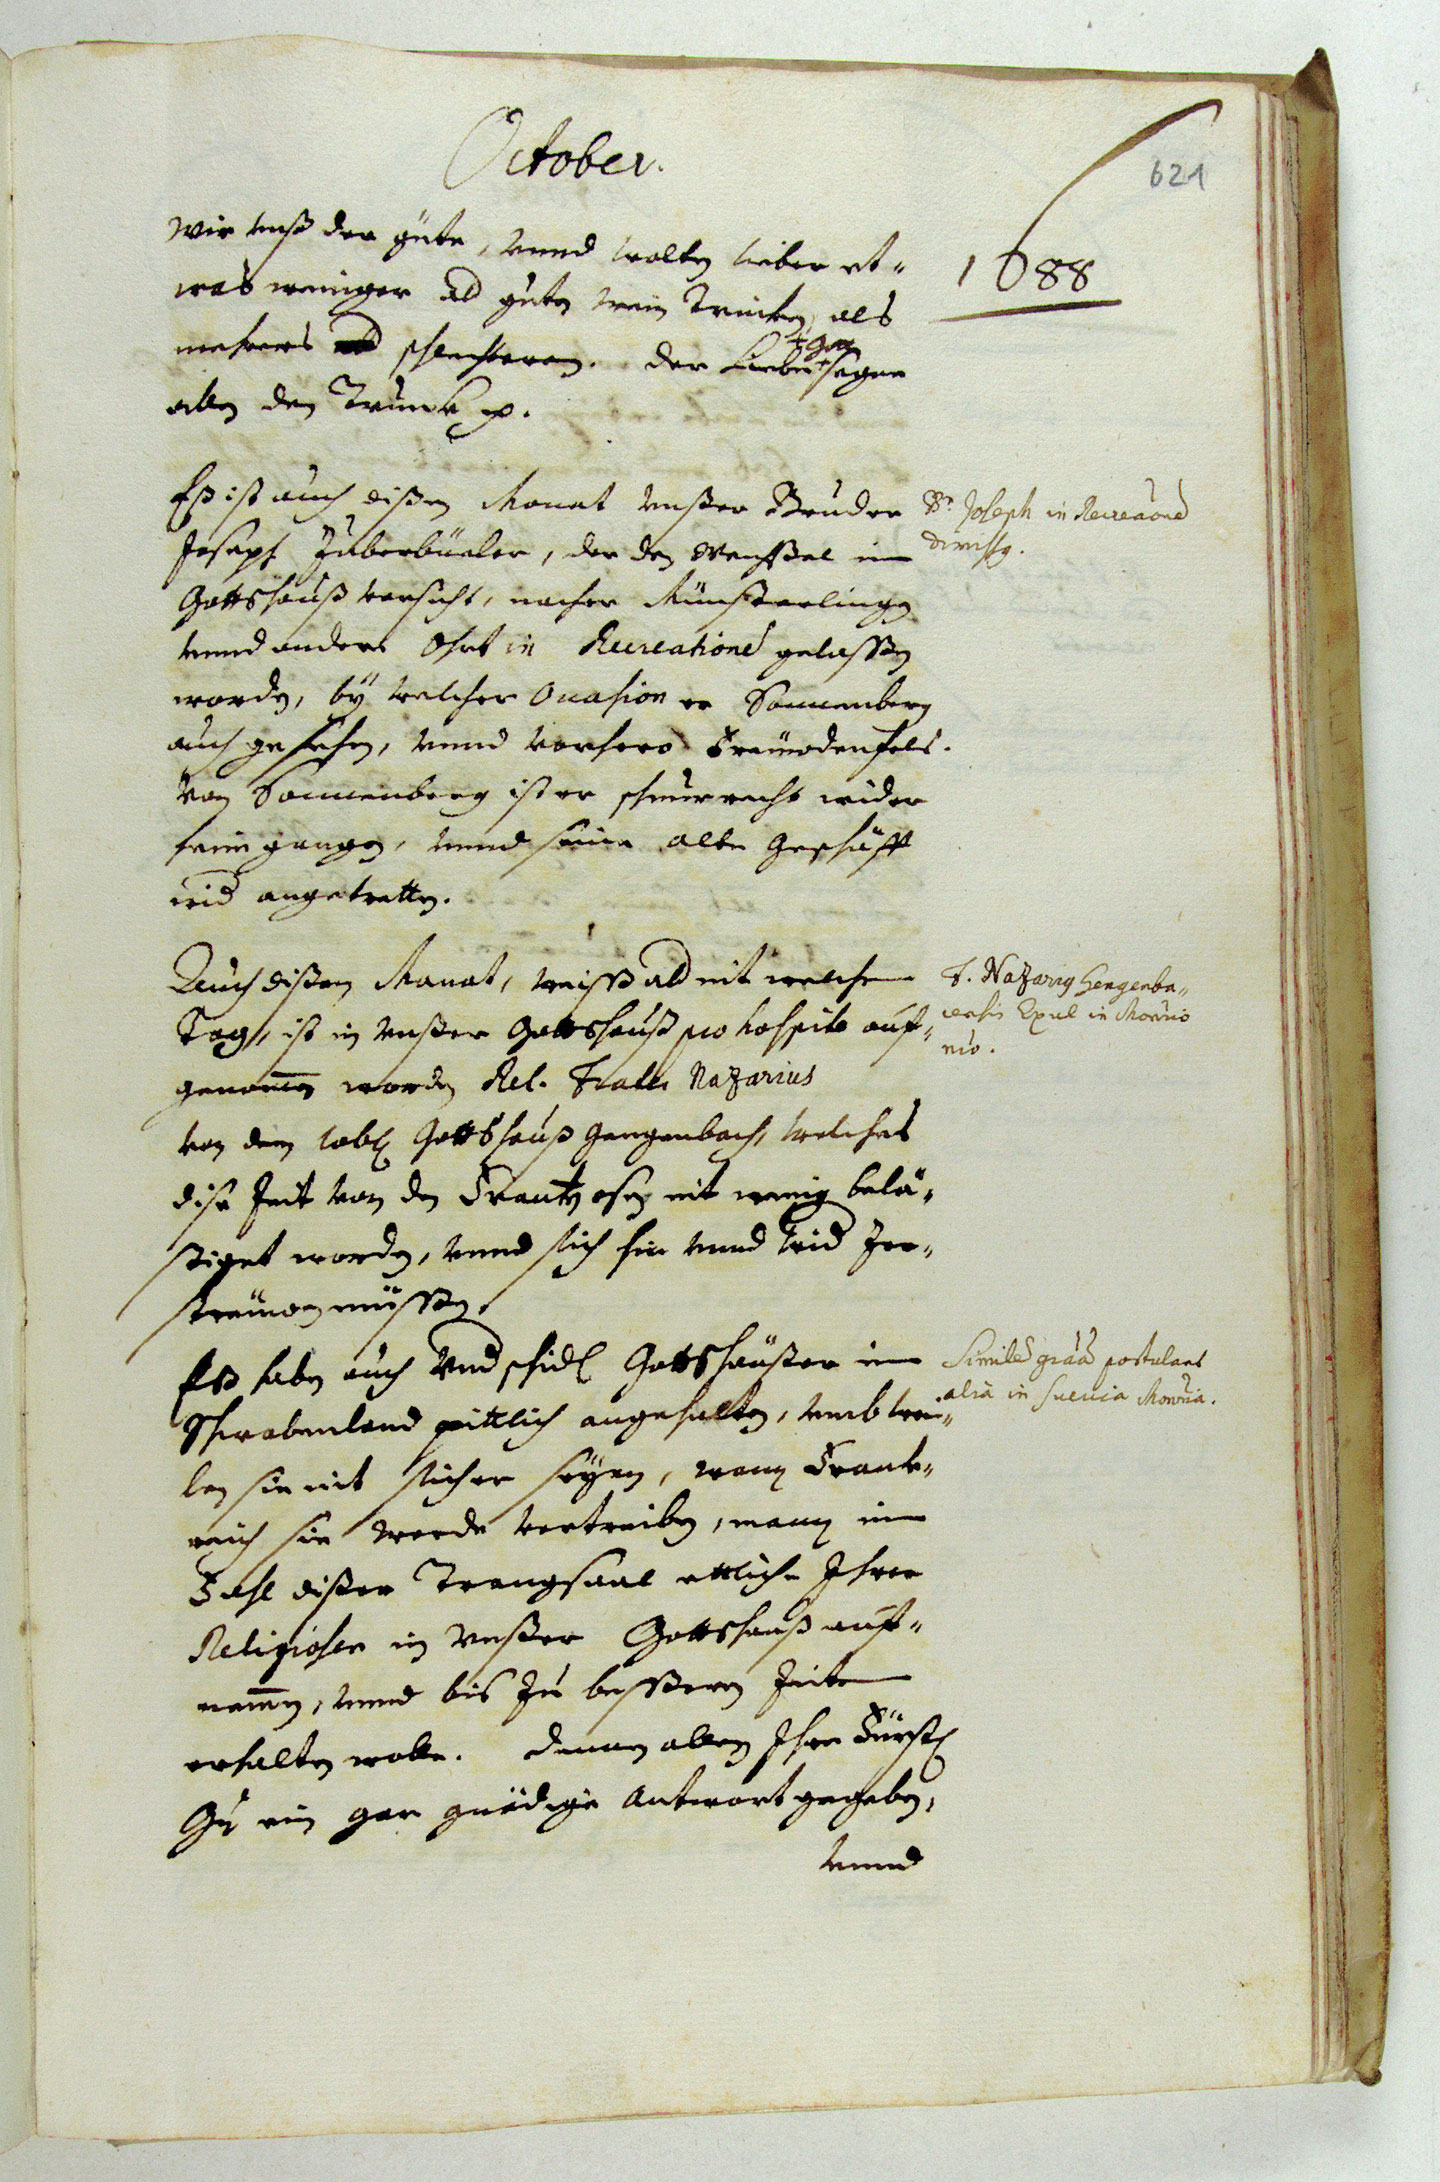 October.
621
1688
wir unß der güte, unnd wolten lieber et-
was weniger ald guten wein Trincken, als
mehrers schlechteren. Der Liebe Gott segne
allen den Trunck p.
Eß ist auch dißen Monat unßer Bruder
Joseph Zuberbüeler, der den im
Gottshauß versicht, nacher Münsterlingen
unnd andere Ohrt in Recreatione gelassen
worden, by welcher Occasion er Sonnenberg
auch gesehen, unnd vorhero Freüdenfels.
Von Sonnenberg ist er schnuerrecht wider
heim gangen, unnd seine alte Geschäfft
wid angetretten.
Br. Joseph in Recreatione
dimissq.
Auch dißen Monat, weiß ald nit welchen
Tag, ist in unßer Gottshauß pro hospite auf-
genommen worden Rel. Frater Nazarius
von dem lobl Gottshauß Gengenbach, welches
dise Zeit von den Frantzosen nit wenig belä-
stiget worden, unnd sich hin unnd wid zer-
streüwen müssen.
F. Nazariq Gengenba-
censis Exul in Monrio
nro.
Eß haben auch und schidl Gottshäußer im
Schwabenland pittlich angehalten, umb wei-
len sie nit sicher seyen, wann Franck-
reich sie werde vertreiben, mann im
Fahl dißer Trangsaal ettliche Ihrer
Religiosen in unßer Gottshauß auf-
nemmen, unnd bis zu besseren Zeiten
erhalten wolle. Denen allen Ihre Fürstl
Gn ein gar gnädige Antwort gegeben,
unnd
Similes graas postulant
alia in Suevia Monria.